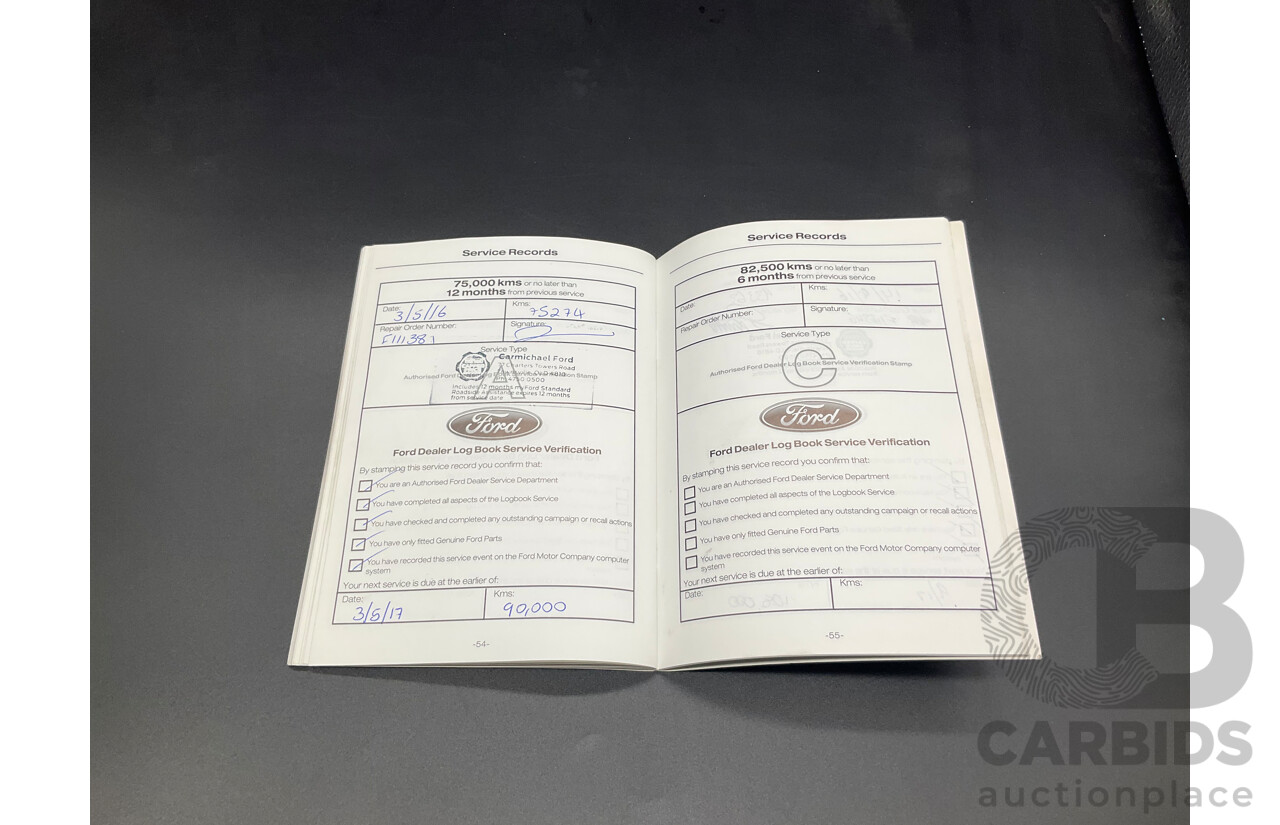 Service Records
75,000 kms or no later than
12 months from previous service
Date: 3/5/16
Kms: 75274
Repair Order Number:
F111381
Signature:
Service Type
A
Carmichael Ford
Charters Towers Road
Authorised Ford Service Verification Stamp
Includes 12 months myFord Standard
Roadside Assistance expires 12 months
from service date
Ford
Ford Dealer Log Book Service Verification
By stamping this service record you confirm that:
You are an Authorised Ford Dealer Service Department
You have completed all aspects of the Logbook Service
You have checked and completed any outstanding campaign or recall actions
You have only fitted Genuine Ford Parts
You have recorded this service event on the Ford Motor Company computer
system
Your next service is due at the earlier of:
Date:
3/5/17
Kms:
90,000
-54-
Service Records
82,500 kms or no later than
6 months from previous service
Date:
Kms:
Repair Order Number:
Signature:
Service Type
C
Authorised Ford Dealer Log Book Service Verification Stamp
Ford
Ford Dealer Log Book Service Verification
By stamping this service record you confirm that:
You are an Authorised Ford Dealer Service Department
You have completed all aspects of the Logbook Service
You have checked and completed any outstanding campaign or recall actions
You have only fitted Genuine Ford Parts
You have recorded this service event on the Ford Motor Company computer
system
Your next service is due at the earlier of:
Date:
Kms:
-55-
CARBIDS
auctionplace